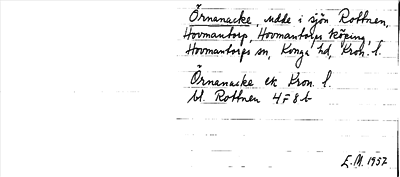 Örnanacke, udde i sjön Rottnen,
Hovmantorp, Hovmantorps köping,
Hovmantorps sn, Konga hd, Kron. l.
Örnanacke ek Kron. l.
bl. Rottnen 4F8b
E.M. 1957